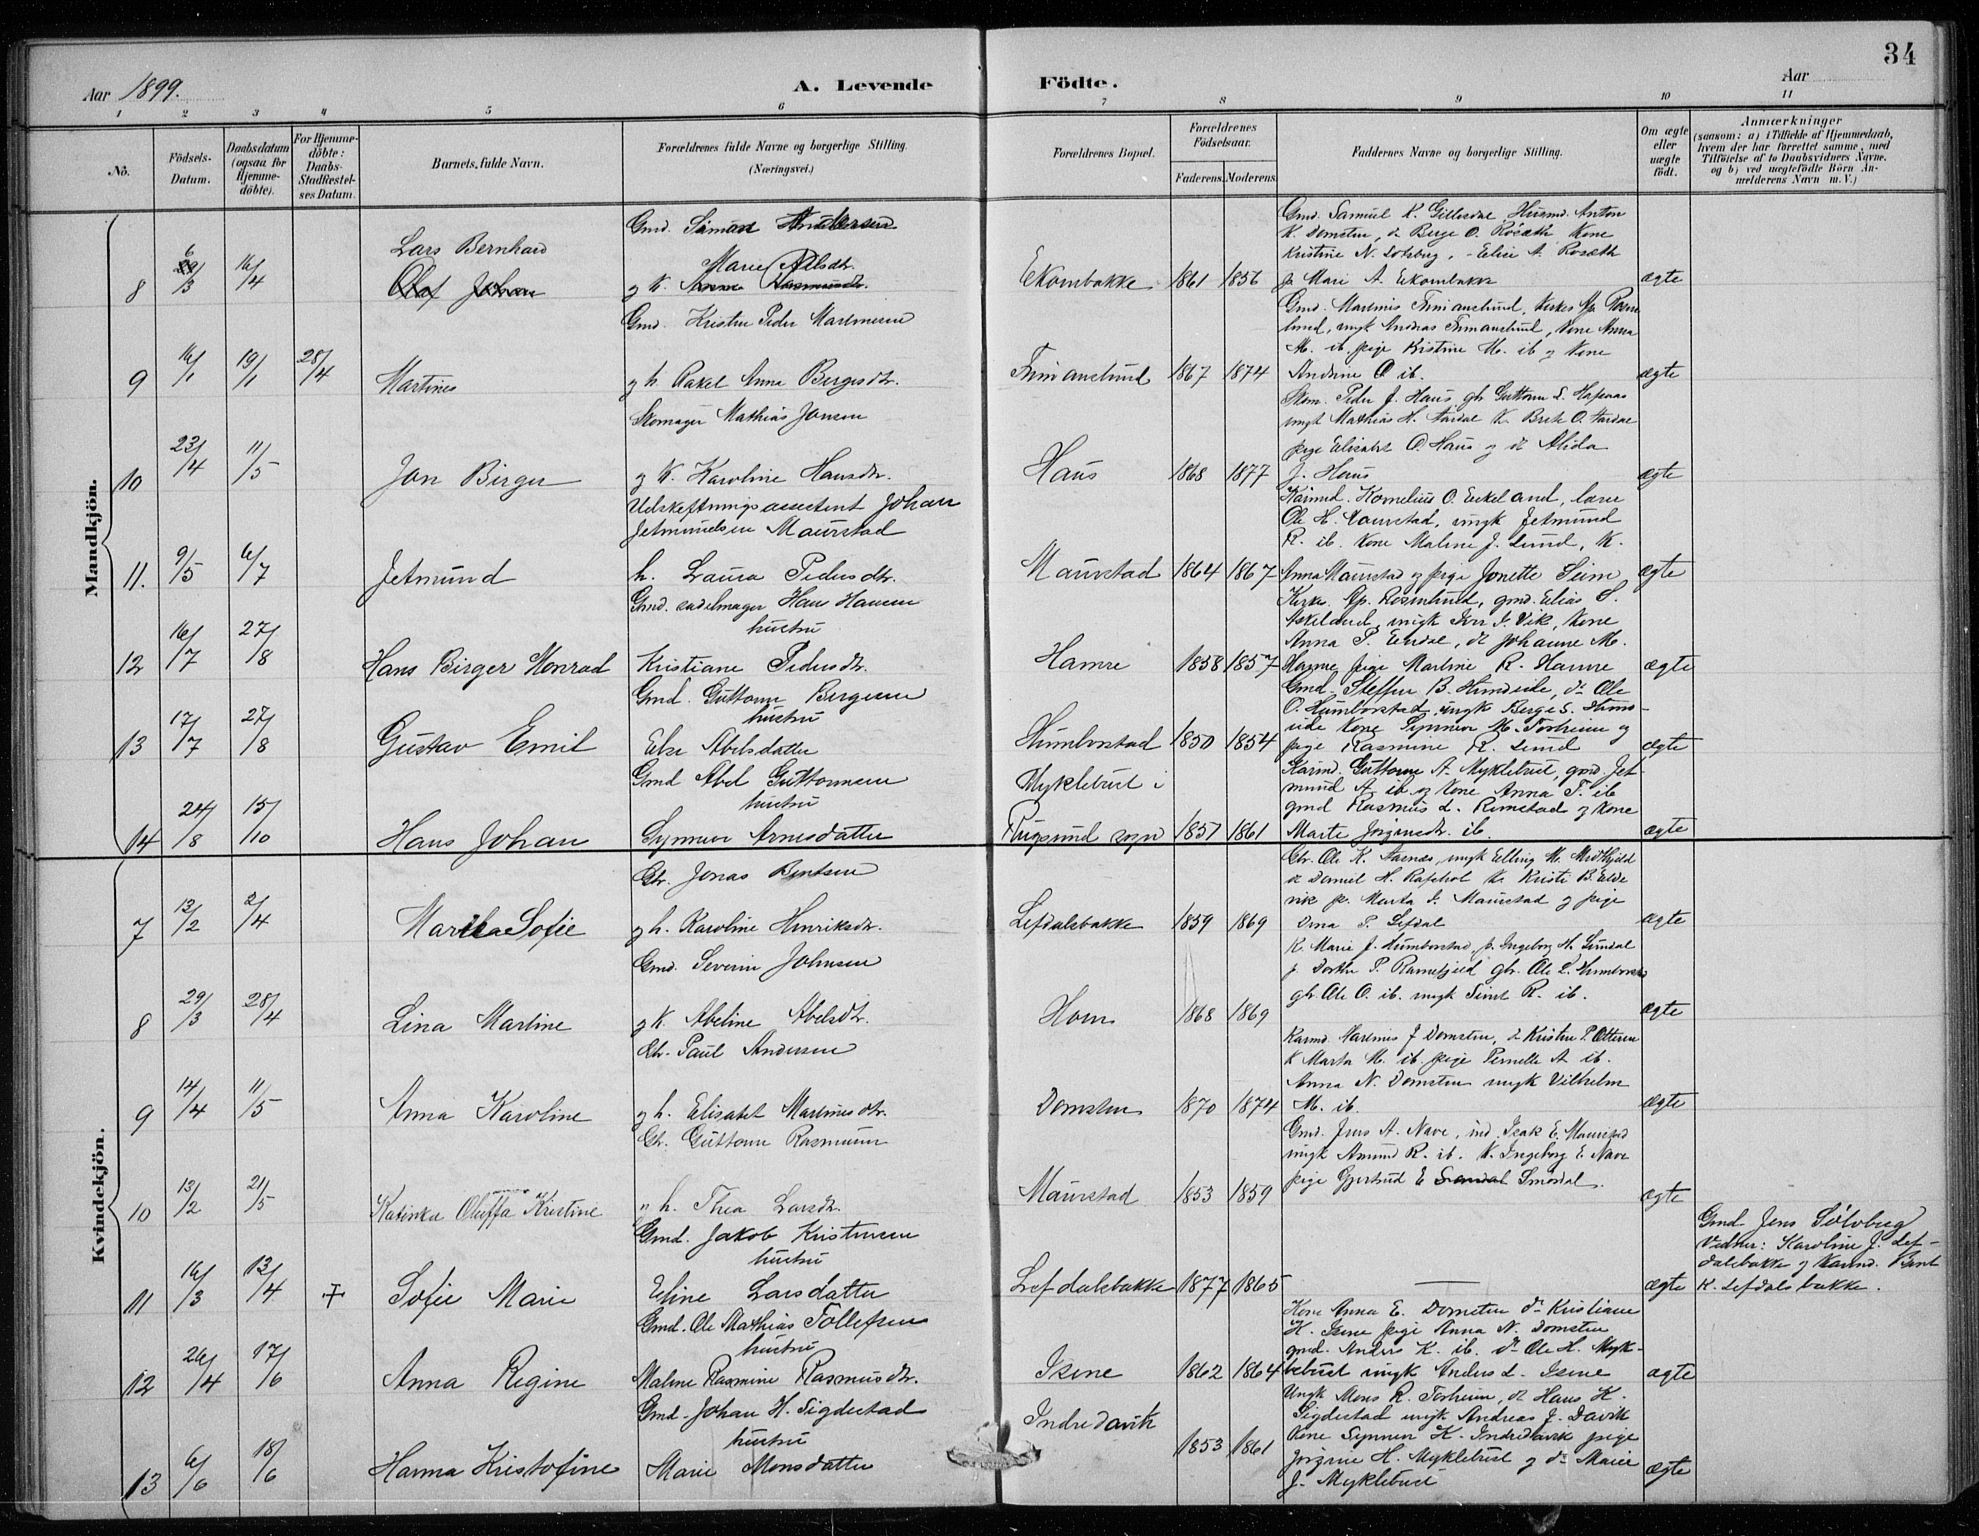 34
Aar 1899.
A. Levende
Födte.
Aar
1 2 3 4 5 6 7 8 9 10 11
No.
Födsels-
Datum.
Daabsdatum
(ogsaa for
Hjemme-
döbte).
For Hjemme-
döbte:
Daabs-
Stadfæstel-
ses Datum.
Barnets, fulde Navn.
Forældrenes fulde Navne og borgerlige Stilling.
(Næringsvei.)
Forældrenes Bopæl.
Forældrenes
Födselsaar.
Faderens. Moderens.
Faddernes Navne og borgerlige Stilling.
Om ægte
eller
uægte
födt.
Anmærkninger
(saasom: a) i Tilfælde af Hjemmedaab,
hvem der har forrettet samme, med
Tilföielse af to Daabsvidners Navne.
og b) ved uægtefödte Börn An-
melderens Navn m. V.)
Mandkjön.
8 6/3 16/4
Lars Bernhard
Olaf Johan
Gmd. Simon Andersen
Marie Nilsdtr.
og K. Rasmusdtr.
Ekornbakke 1861 1856
Gmd. Samuel K. Gillesdal Husmd. Anton
K. Domsten, d. Berge O. Rosæth Kone
Kristine N. Solsberg, Elise A. Rosæth
p. Mari A. Ekornbakke
ægte
9 16/1 19/1 28/4
Martines
Gmd. Kristen Peder Martinsen
og h. Rakel Anna Bergesdtr.
1867 1874
M. ib. pige Kristine M. ib og Kone
Andrine O ib.
ægte
10 23/4 11/5
Jon Birger
Skomager Mathias Jonsen
og K. Karoline Hansdtr.
Haus 1868 1877
Skom. Peder J. Haus gbr Guttorm S. Hapnæs
ungk Mathias H. Aardal K. Brite O. Aardal
pige Elisabet O. Haus og d Alida
J. Haus
ægte
11. 9/5 6/7
Jetmund
Udskiftningsassistent Johan
Jetmundsen Maurstad
h. Laura Pedersdtr.
Maurstad 1864 1867
Kaarmd. Kornelius O. Eikeland, lærer
Ole H. Maurstad, ungk Jetmund
R. ib. Kone Maline J. Lund, K.
Anna Maurstad og pige Jonette Seim
ægte
12 16/7 27/8
Hans Birger Monrad
Gmd. sadelmager Hans Hansen
hustru
Kristiane Pedersdtr.
Hamre 1858 1857
Anna P. Endal, d Johanne M.
Hamre pige Martine R. Hamre
ægte
13 17/7 27/8
Gustav Emil
Gmd. Guttorm Bergesen
hustru
Else Abelsdatter
Humborstad 1850 1854
Gmd. Steffen B. Hundeide, do Ole
O. Humborstad, ungk Berge S. Hund-
eide Kone Synneve M. Torheim og
pige Rasmine R. Lund
ægte
14 24/8 15/10
Hans Johan
Gmd Abel Guttormsen
hustru
Synneve Arnesdatter
Myklebust i
Rugsund sogn 1857 1861
Kaarmd. Guttorm A. Myklebust, gmd Jet-
mund A ib og Kone Anna T. ib
gmd Rasmus L. Rimstad og Kone
Marte Jörginedtr. ib.
ægte
Kvindekjön.
7 12/2 2/4
Marita Sofie
Gbr. Jonas Bentsen
og h. Karoline Henriksdtr.
Lefdalsbakke 1859 1869
Gbr. Ole K. Aarnæs, ungk Elling M. Midthjell
d Daniel H. Rafshol K Kristi B. Eide
vik p. Marta S. Maurstad og pige
Oena P. Lefdal
ægte
8 29/3 28/4
Lina Martine
Gmd. Severin Johnsen
og K. Abeline Abelsdtr.
Hom 1868 1869
K. Marie J. Humborstad, p. Ingeborg M. Lundal
p Dorthe P. Ramefjeld gbr. Ole L. Humborstad
gbr. Ole O. ib. ungk Simt R. ib.
ægte
9 14/4 11/5
Anna Karoline
Gbr. Paul Andersen
og h. Elisabet Martinusdtr.
Domsten 1870 1874
Kaarmd Martinus J Domsten, d Kristen P. Otteren
K Marta M. ib. pige Pernelle A ib.
Anna N. Domsten ungk Vilhelm
M. ib.
ægte
10 13/2 21/5
Katinka Oluffa Kristine
Gbr. Guttorm Rasmussen
" h. Thea Larsdtr.
Maurstad 1853 1859
Gmd. Jens A. Nave, ind. Isak E. Maurstad
ungk Amund R. ib. K. Ingeborg E Nave
pige Gjertrud E Smördal.
ægte
11 16/3 13/4 +
Sofie Marie
Gmd. Jakob Kristensen
hustru
Eline Larsdatter
Lefdalsbakke 1877 1865
—
ægte
Gmd Jens Sölvberg
Vidner: Karoline J. Lef-
dalsbakke og Kaarmd. Bent
K. Lefdalsbakke.
12 26/4 17/6
Anna Regine
Gmd. Ole Mathias Tollefsen
hustru
Maline Rasmine Rasmusdtr.
Isene 1862 1864
Kone Anna E. Domsten do Kristiane
H. Isene pige Anna N. Domsten
gmd. Anders K. ib. do Ole H. Myk-
lebust ungk Anders L. Isene
ægte
13 6/6 18/6
Hanna Kristofine
Gmd. Johan H. Sigdestad
hustru
Marie Monsdatter
Indre Davik
1853 1861
Ungk Mons R. Torheim, d Hans K.
Sigdestad ungk Andreas J. Davik
Kone Synneve K. Indredavik pige
Jörgine H. Myklebust og do Marie
J. Myklebust
ægte